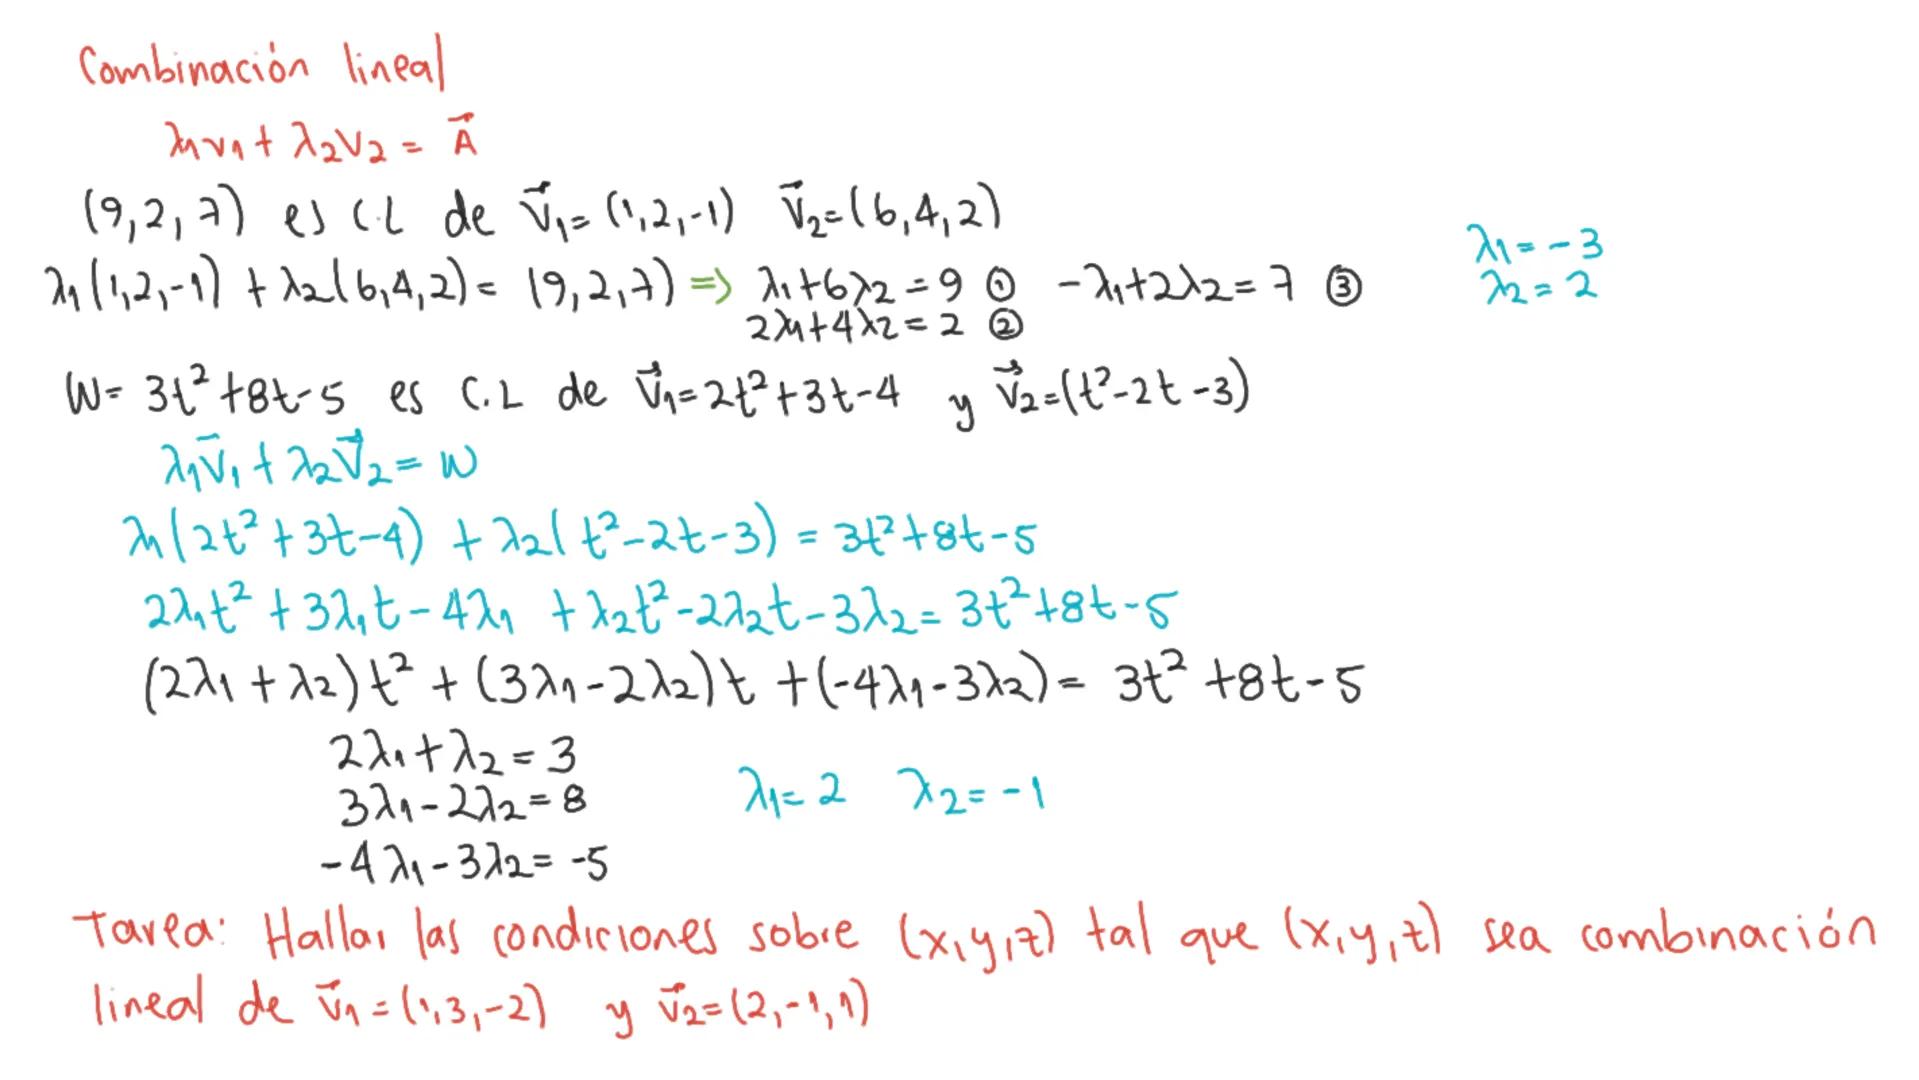 Combinación lineal
λ1v1 + λ2v2 = A⃗
(9,2,7) es C.L de v⃗1=(1,2,-1) v⃗2=(6,4,2)
λ1(1,2,-1) + λ2(6,4,2) = (9,2,7) => λ1+6λ2=9 ① -λ1+2λ2=7 ③
2λ1+4λ2=2 ②
λ1=-3
λ2=2
W= 3t²+8t-5 es C.L de v⃗1=2t²+3t-4 y v⃗2=(t²-2t-3)
λ1v⃗1 + λ2v⃗2 = W
λ1(2t²+3t-4) + λ2(t²-2t-3) = 3t²+8t-5
2λ1t²+3λ1t-4λ1 + λ2t²-2λ2t-3λ2= 3t²+8t-5
(2λ1+λ2)t² + (3λ1-2λ2)t +(-4λ1-3λ2)= 3t²+8t-5
2λ1+λ2=3
3λ1-2λ2=8
λ1=2 λ2=-1
-4λ1-3λ2=-5
Tarea: Hallar las condiciones sobre (x,y,z) tal que (x,y,z) sea combinación
lineal de v⃗1=(1,3,-2) y v⃗2=(2,-1,1)